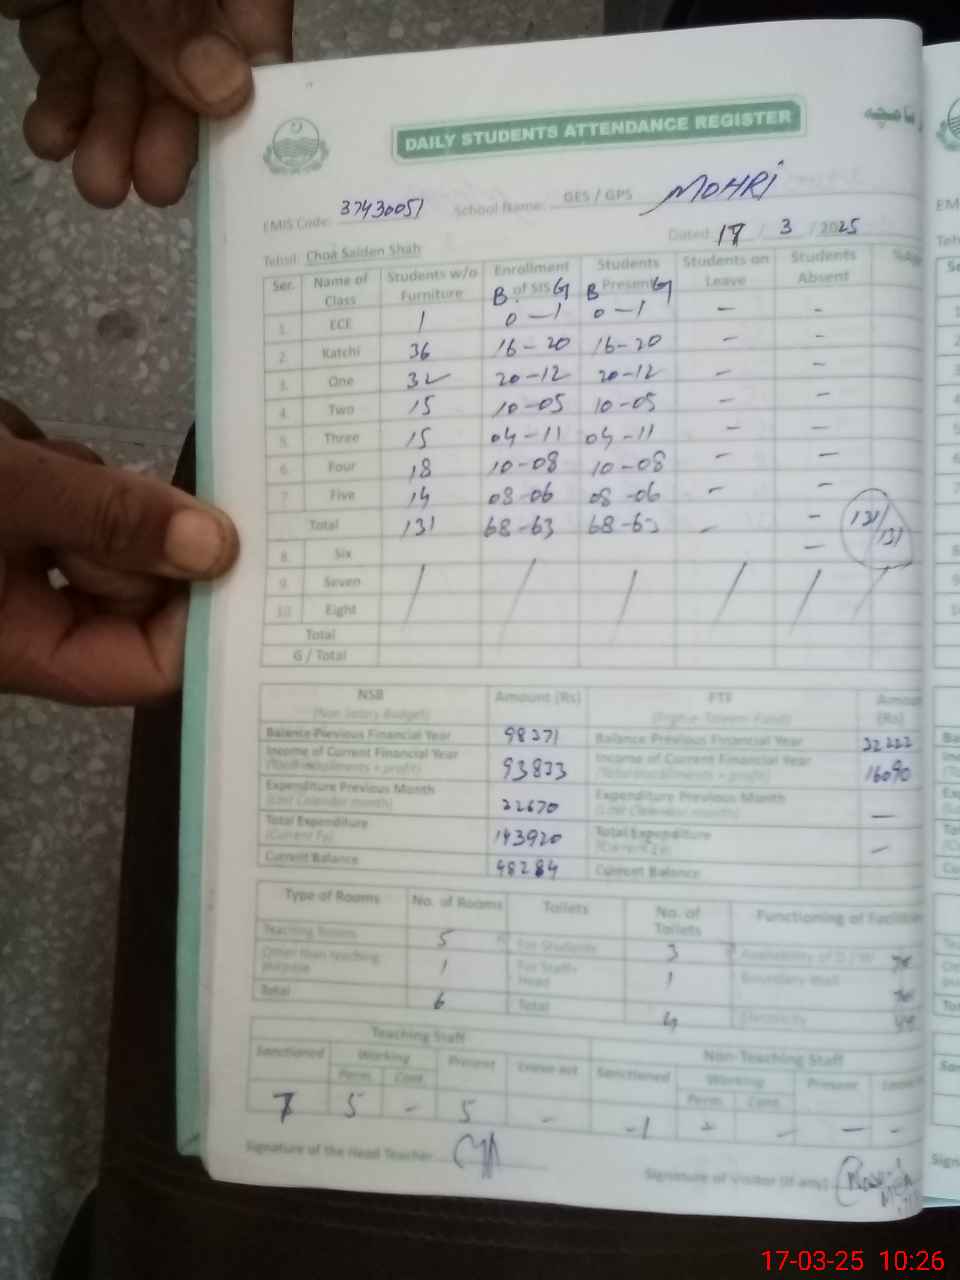 DAILY STUDENTS ATTENDANCE REGISTER
EMIS Code: 37430051 School Name: GES / GPS MOHRI
Tehsil: Choa Saiden Shah Dated: 17 / 3 / 2025
Ser. Name of Class Students w/o Furniture Enrollment of SIS B. G Students Present B G Students on Leave Students Absent
1. ECE 1 0 - 1 0 - 1 - -
2. Katchi 36 16 - 20 16 - 20 - -
3. One 32 20 - 12 20 - 12 - -
4. Two 15 10 - 05 10 - 05 - -
5. Three 15 04 - 11 04 - 11 - -
6. Four 18 10 - 08 10 - 08 - -
7. Five 14 08 - 06 08 - 06 - -
Total 131 68 - 63 68 - 63 - - 131/131
8. Six -
9. Seven / / / / / /
10. Eight
Total
G / Total
NSB (Non Salary Budget) Amount (Rs) FTF (Farogh-e-Taleem Fund) Amount (Rs)
Balance Previous Financial Year 98371 Balance Previous Financial Year 32222
Income of Current Financial Year 93833 Income of Current Financial Year 16090
Expenditure Previous Month 22670 Expenditure Previous Month -
(Last Calendar month) (Last Calendar month)
Total Expenditure 143920 Total Expenditure -
(Current Fy) (Current Fy)
Current Balance 48284 Current Balance
Type of Rooms No. of Rooms Toilets No. of Toilets Functioning of Facilities
Teaching Rooms 5 For Students 3
Other than teaching purpose 1 For Staff- Head 1 Boundary Wall
Total 6 Total 4 Electricity
Teaching Staff Non-Teaching Staff
Sanctioned Working Present Leave ect Sanctioned Working Present
Perm. Cont. Perm. Cont.
7 5 - 5 - -1 - - - -
Signature of the Head Teacher
Signature of Visitor (if any)
17-03-25 10:26